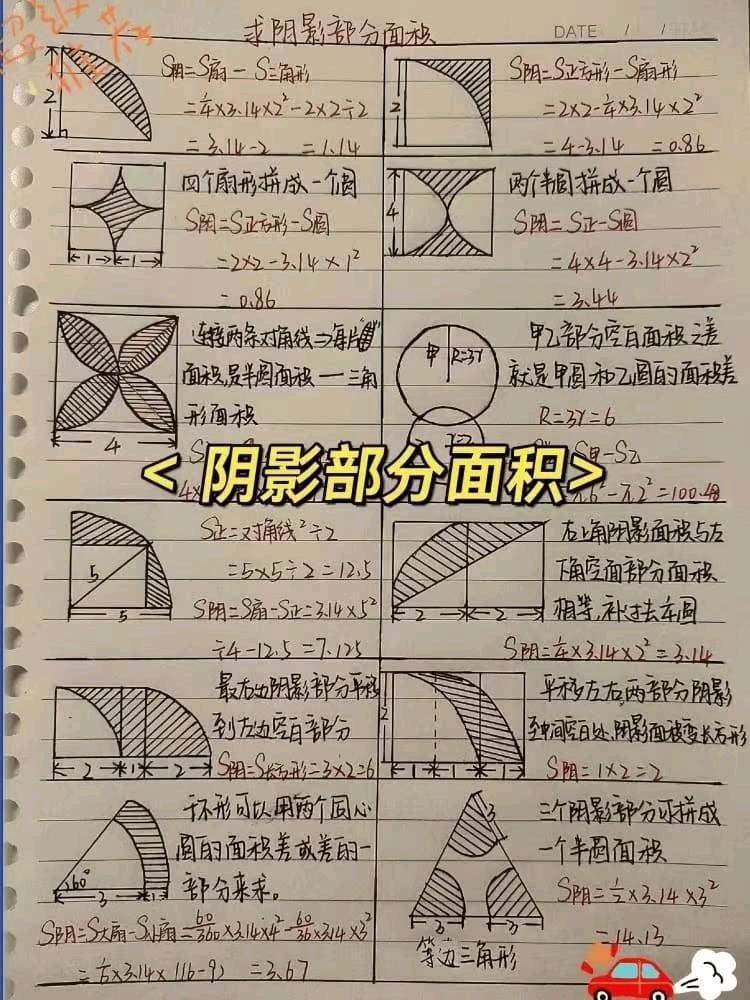 求阴影部分面积
DATE / /
2
S阴=S扇-S三角形
=¼×3.14×2²-2×2÷2
=3.14-2 =1.14
2
S阴=S正方形-S扇形
=2×2-¼×3.14×2²
=4-3.14 =0.86
1 1
四个扇形拼成一个圆
S阴=S正方形-S圆
=2×2-3.14×1²
=0.86
4
两个半圆拼成一个圆
S阴=S正-S圆
=4×4-3.14×2²
=3.44
4
连接两条对角线⇒每片
面积是半圆面积一三角
形面积
甲 R=3r
甲乙部分空白面积之差
就是甲圆和乙圆的面积差
R=3r=6
S甲-S乙
π.6²-π.2²=100.48
<阴影部分面积>
5
5
S正=对角线²÷2
=5×5÷2=12.5
S阴=S扇-S正=3.14×5²
÷4-12.5=7.125
2 2
右上角阴影面积与左
下角空面部分面积
相等,补过去
S阴=¼×3.14×2²=3.14
2 1 2
最右边阴影部分平移
到左边空白部分
S阴=S长方形=3×2=6
2
1 1 1
平移左右两部分阴影
至中间空白处,阴影面积变长方形
S阴=1×2=2
60°
3 1
环形可以用两个同心
圆的面积差或差的一
部分来求。
S阴=S大扇-S小扇=60/360×3.14×4²-60/36×3.14×3²
=⅙×3.14×(16-9) =3.67
3
3 3
等边三角形
三个阴影部分可拼成
一个半圆面积
S阴=½×3.14×3²
=14.13